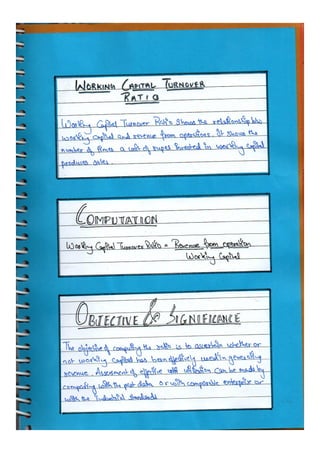 WORKING CAPITAL TURNOVER
RATIO
Working Capital Turnover Ratio shows the relationship b/w
working capital and revenue from operations. It shows the
number of times a unit of rupee invested in working capital
produces sales.
COMPUTATION
Working Capital Turnover Ratio = Revenue from operation
Working Capital
OBJECTIVE & SIGNIFICANCE
The objective of computing the ratio is to ascertain whether or
not working capital has been effectively used in generating
revenue. Assessment of effective utilisation can be made by
comparing with the past data or with comparable enterprise or
with the industrial standards.